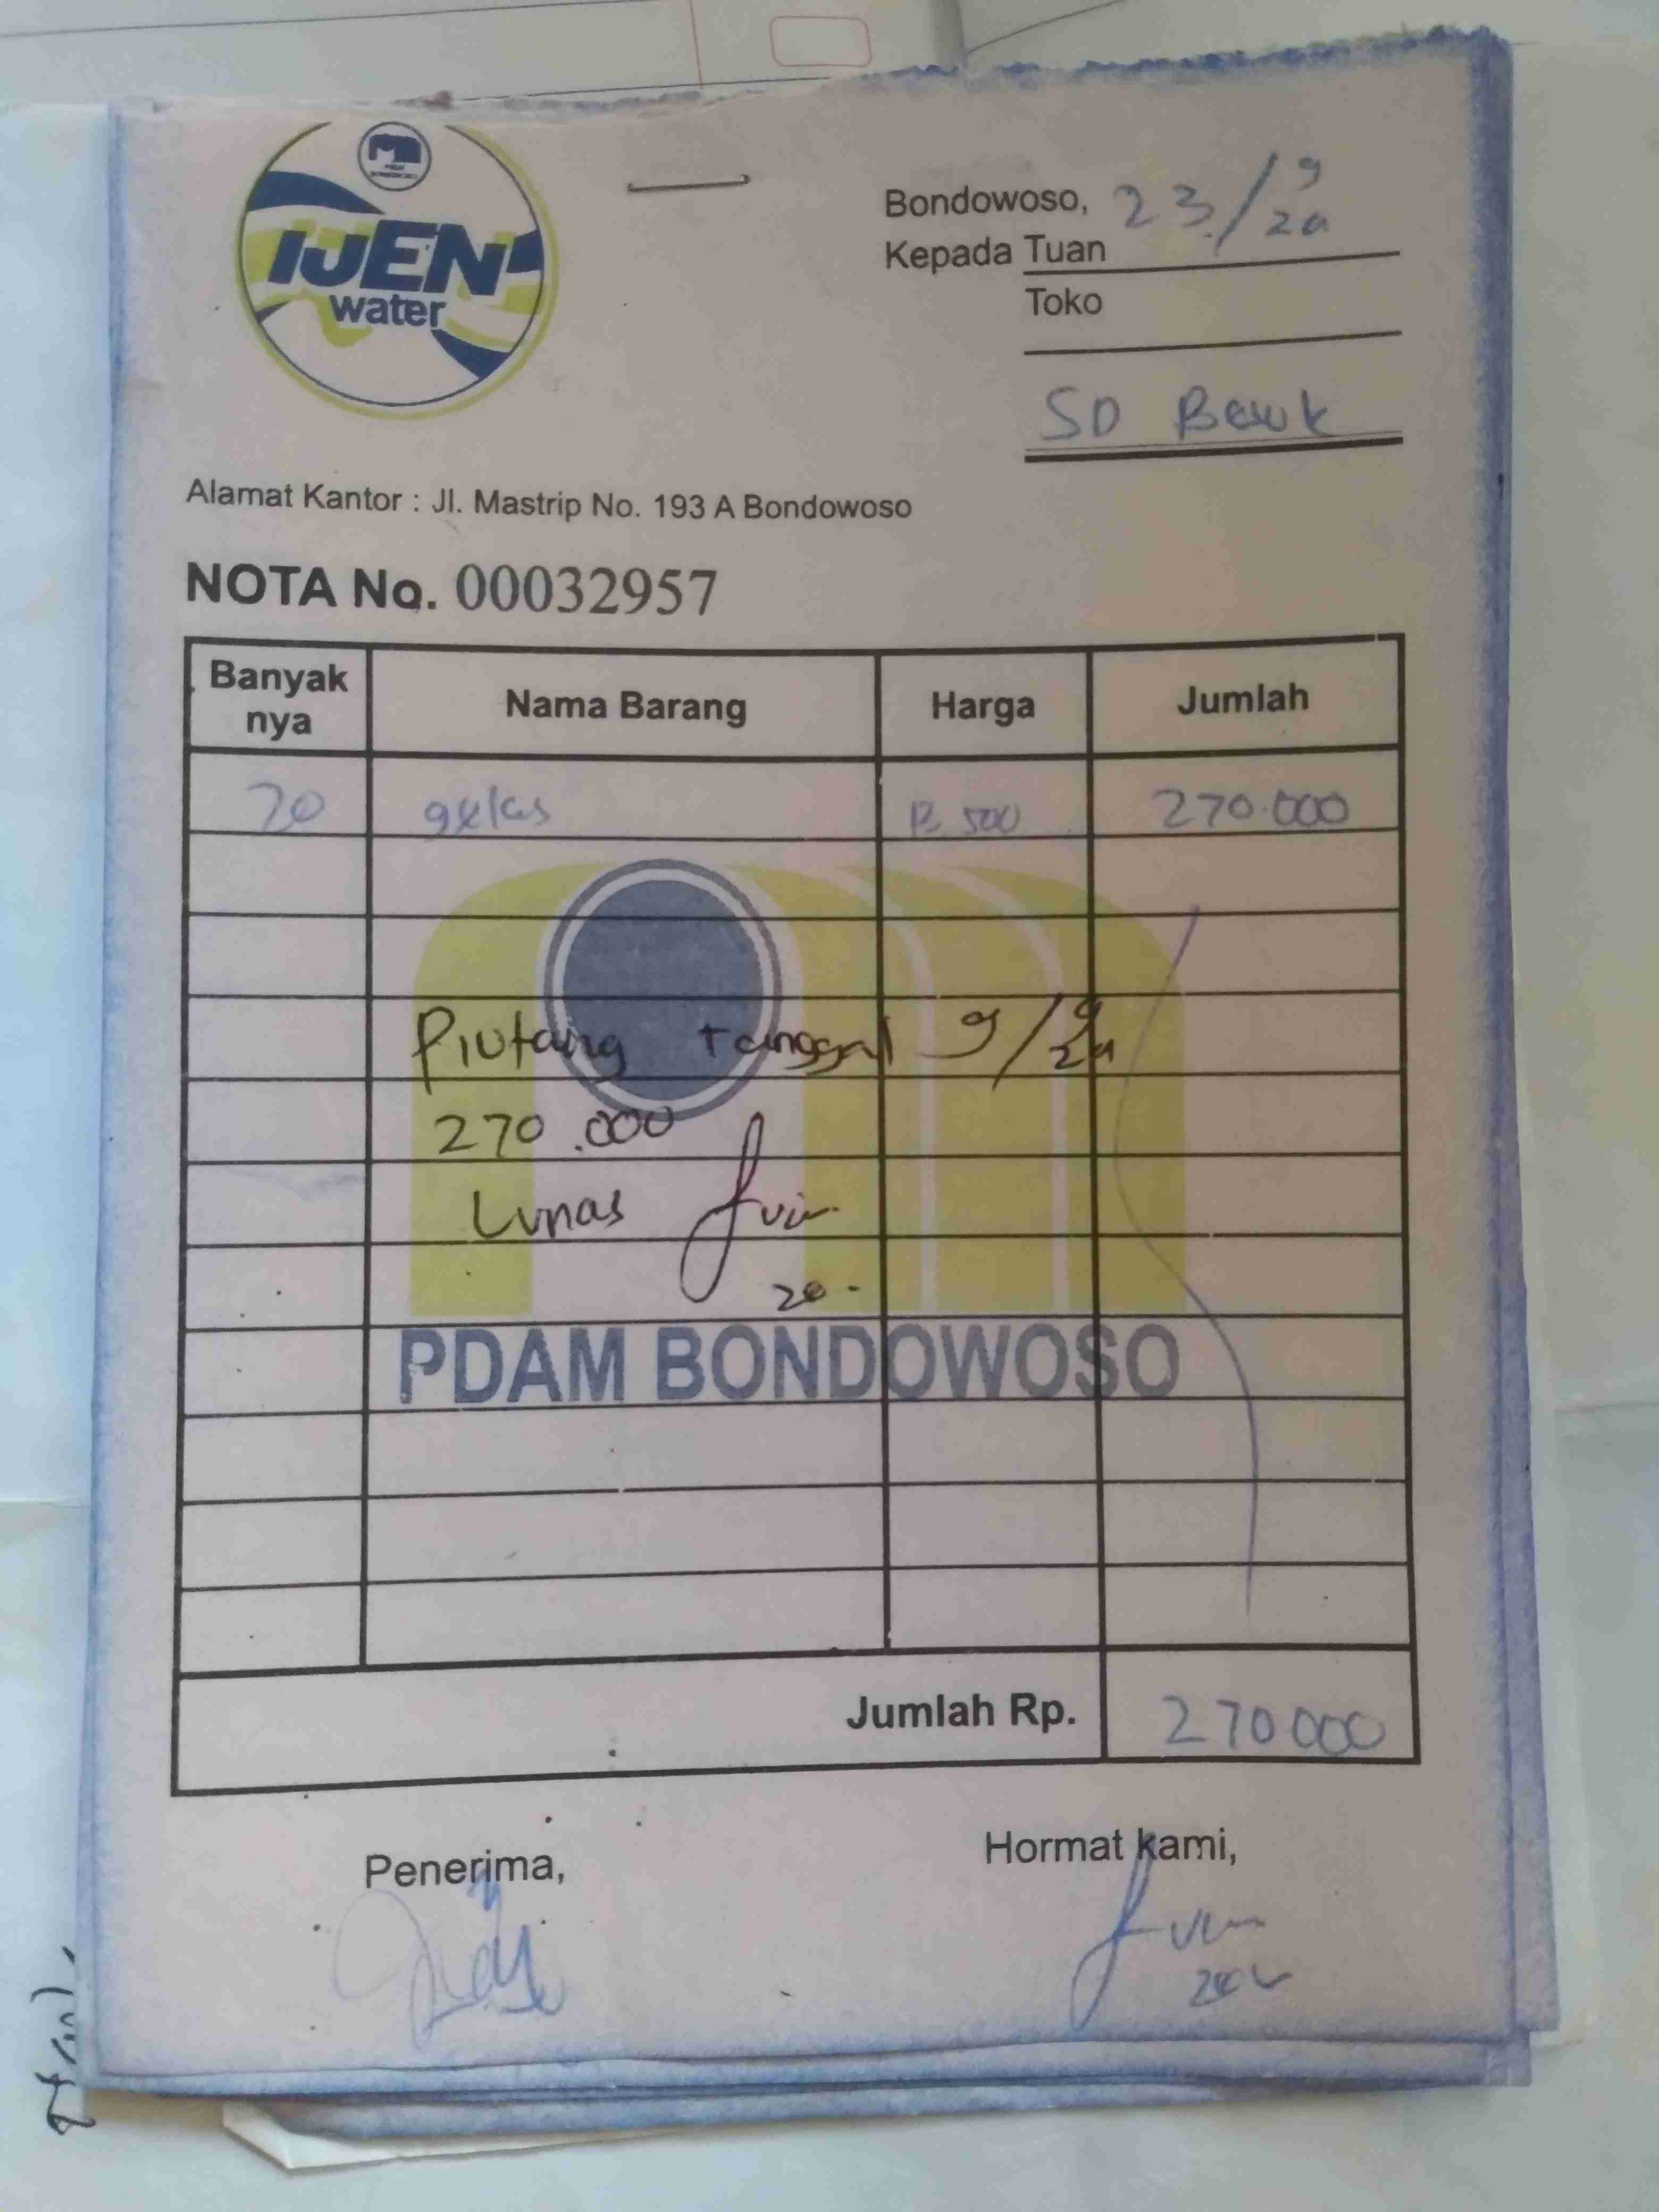 IJEN
water
Bondowoso, 23/9
Kepada Tuan
Toko
SD
Alamat Kantor : Jl. Mastrip No. 193 A Bondowoso
NOTA No. 00032957
Banyak nya Nama Barang Harga Jumlah
20 gelas 13.500 270.000
Piutang tanggal 9/9
270.000
Lunas
PDAM BONDOWOSO
Jumlah Rp. 270 000
Penerima, Hormat kami,